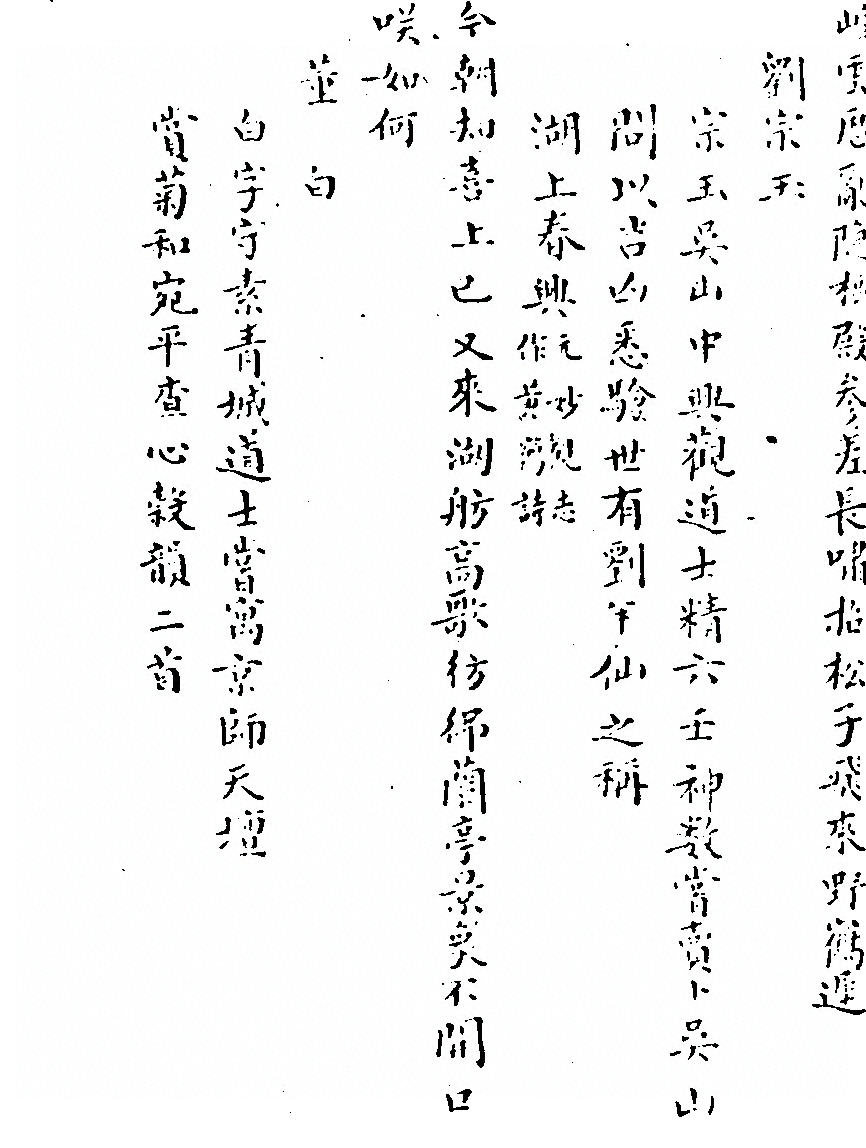 峰雲歷亂隱松殿參差長嘯招松子飛來野鶴遲
劉宗玉
宗玉吳山中興觀道士精六壬神数嘗賣卜吳山
問以吉凶悉驗世有劉半仙之稱
湖上春興元妙觀志作黄詩
今朝初喜上巳又來湖舫高歌彷彿蘭亭景矣不開口
咲如何
董白
白字守素青城道士嘗寓京師天壇
賞菊和宛平查心穀韻二首